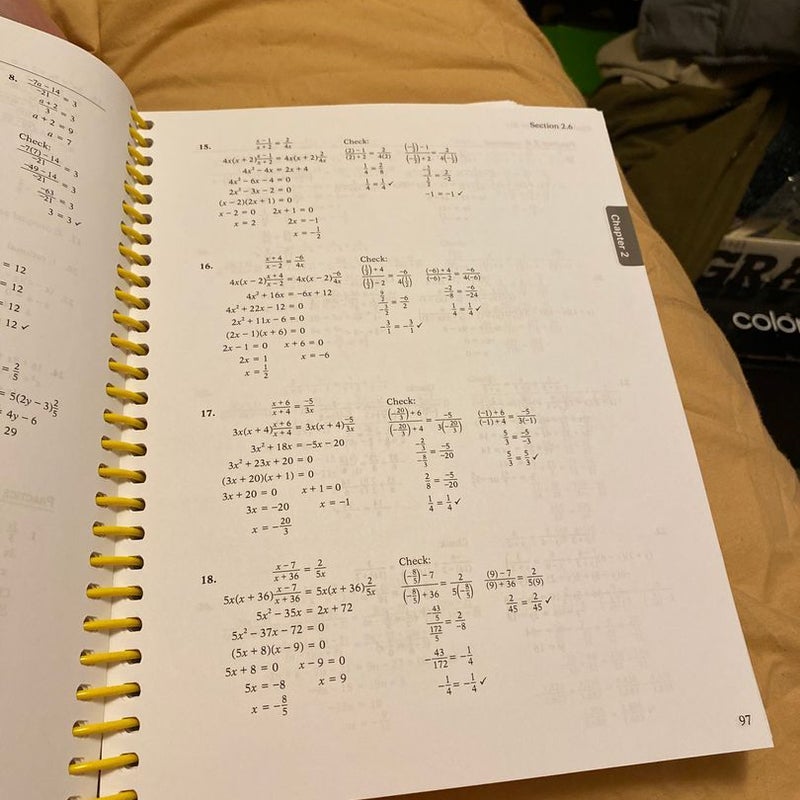 8. (-7a-14)/(-21) = 3
(a+2)/3 = 3
a + 2 = 9
a = 7
Check:
(-7(7)-14)/(-21) = 3
(-49-14)/(-21) = 3
(-63)/(-21) = 3
3 = 3 ✓
= 12
= 12
12
12 ✓
= 2/5
= 5(2y - 3)2/5
= 4y - 6
29
Section 2.6
Chapter 2
15. (x-1)/(x+2) = 2/(4x)
4x(x+2)(x-1)/(x+2) = 4x(x+2)2/(4x)
4x² - 4x = 2x + 4
4x² - 6x - 4 = 0
2x² - 3x - 2 = 0
(x - 2)(2x + 1) = 0
x - 2 = 0 2x + 1 = 0
x = 2 2x = -1
x = -1/2
Check:
((2)-1)/((2)+2) = 2/(4(2)) ((-1/2)-1)/((-1/2)+2) = 2/(4(-1/2))
1/4 = 2/8
1/4 = 1/4 ✓
-1 = -1 ✓
16. (x+4)/(x-2) = -6/(4x)
4x(x-2)(x+4)/(x-2) = 4x(x-2)(-6)/(4x)
4x² + 16x = -6x + 12
4x² + 22x - 12 = 0
2x² + 11x - 6 = 0
(2x - 1)(x + 6) = 0
2x - 1 = 0 x + 6 = 0
2x = 1 x = -6
x = 1/2
Check:
((1/2)+4)/((1/2)-2) = -6/(4(1/2)) ((-6)+4)/((-6)-2) = -6/(4(-6))
-2/-8 = -6/-24
1/4 = 1/4 ✓
-3/1 = -3/1 ✓
17. (x+6)/(x+4) = -5/(3x)
3x(x+4)(x+6)/(x+4) = 3x(x+4)(-5)/(3x)
3x² + 18x = -5x - 20
3x² + 23x + 20 = 0
(3x + 20)(x + 1) = 0
3x + 20 = 0 x + 1 = 0
3x = -20 x = -1
x = -20/3
Check:
((-20/3)+6)/((-20/3)+4) = -5/(3(-20/3)) ((-1)+6)/((-1)+4) = -5/(3(-1))
(-2/3)/(-8/3) = -5/-20 5/3 = -5/-3
2/8 = -5/-20 5/3 = 5/3 ✓
1/4 = 1/4 ✓
18. (x-7)/(x+36) = 2/(5x)
5x(x+36)(x-7)/(x+36) = 5x(x+36)2/(5x)
5x² - 35x = 2x + 72
5x² - 37x - 72 = 0
(5x + 8)(x - 9) = 0
5x + 8 = 0 x - 9 = 0
5x = -8 x = 9
x = -8/5
Check:
((-8/5)-7)/((-8/5)+36) = 2/(5(-8/5)) ((9)-7)/((9)+36) = 2/(5(9))
(-43/5)/(172/5) = 2/-8 2/45 = 2/45 ✓
-43/172 = -1/4
-1/4 = -1/4 ✓
97
GRA
color